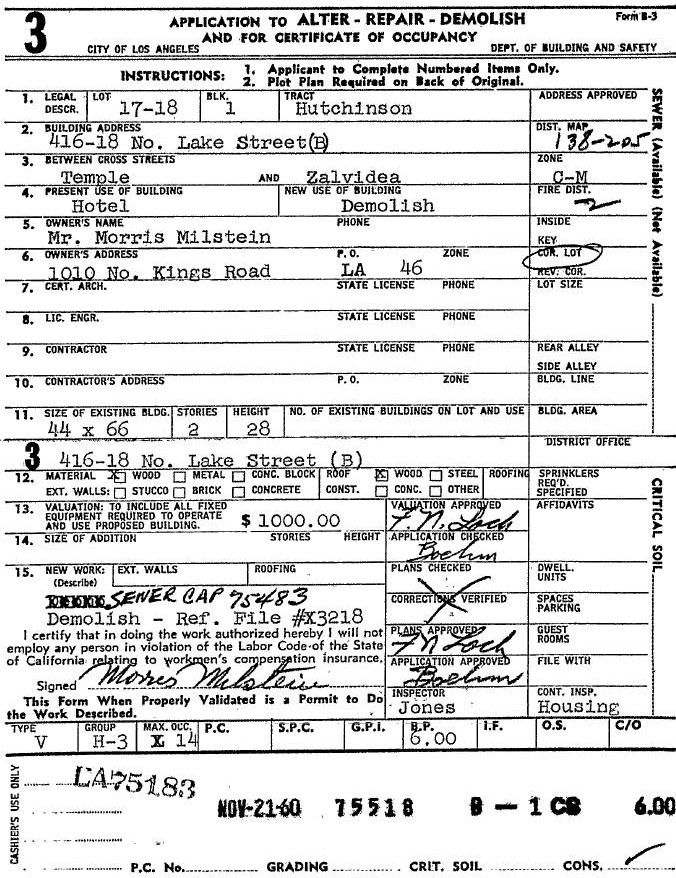 3
APPLICATION TO ALTER - REPAIR - DEMOLISH
AND FOR CERTIFICATE OF OCCUPANCY
Form B-3
CITY OF LOS ANGELES
DEPT. OF BUILDING AND SAFETY
INSTRUCTIONS: 1. Applicant to Complete Numbered Items Only.
2. Plot Plan Required on Back of Original.
1. LEGAL DESCR. LOT 17-18 BLK. 1 TRACT Hutchinson
ADDRESS APPROVED
2. BUILDING ADDRESS
416-18 No. Lake Street(B)
DIST. MAP
138-205
3. BETWEEN CROSS STREETS
Temple AND Zalvidea
ZONE
C-M
4. PRESENT USE OF BUILDING NEW USE OF BUILDING
Hotel Demolish
FIRE DIST.
2
5. OWNER'S NAME PHONE
Mr. Morris Milstein
INSIDE
KEY
6. OWNER'S ADDRESS P.O. ZONE
1010 No. Kings Road LA 46
COR. LOT
REV. COR.
7. CERT. ARCH. STATE LICENSE PHONE
LOT SIZE
8. LIC. ENGR. STATE LICENSE PHONE
9. CONTRACTOR STATE LICENSE PHONE
REAR ALLEY
SIDE ALLEY
10. CONTRACTOR'S ADDRESS P.O. ZONE
BLDG. LINE
11. SIZE OF EXISTING BLDG. STORIES HEIGHT NO. OF EXISTING BUILDINGS ON LOT AND USE
44 x 66 2 28
BLDG. AREA
SEWER (Available) (Not Available)
3 416-18 No. Lake Street (B)
DISTRICT OFFICE
12. MATERIAL X WOOD METAL CONC. BLOCK ROOF X WOOD STEEL ROOFING
EXT. WALLS: STUCCO BRICK CONCRETE CONST. CONC. OTHER
SPRINKLERS
REQ'D.
SPECIFIED
13. VALUATION: TO INCLUDE ALL FIXED
EQUIPMENT REQUIRED TO OPERATE
AND USE PROPOSED BUILDING. $ 1000.00
VALUATION APPROVED
F. N. Loch
AFFIDAVITS
14. SIZE OF ADDITION STORIES HEIGHT
APPLICATION CHECKED
Boehm
15. NEW WORK: EXT. WALLS ROOFING
(Describe)
PLANS CHECKED
DWELL. UNITS
SEWER CAP 75483
CORRECTIONS VERIFIED
SPACES PARKING
Demolish - Ref. File #X3218
I certify that in doing the work authorized hereby I will not
employ any person in violation of the Labor Code of the State
of California relating to workmen's compensation insurance.
PLANS APPROVED
F N Loch
GUEST ROOMS
Signed Morris Milstein
APPLICATION APPROVED
Boehm
FILE WITH
This Form When Properly Validated is a Permit to Do
the Work Described.
INSPECTOR
Jones
CONT. INSP.
Housing
CRITICAL SOIL
TYPE V GROUP H-3 MAX. OCC. X 14 P.C. S.P.C. G.P.I. B.P. 6.00 I.F. O.S. C/O
CASHIER'S USE ONLY
LA75183
NOV-21-60 75518 B — 1 CS 6.00
P.C. No. GRADING CRIT. SOIL CONS.